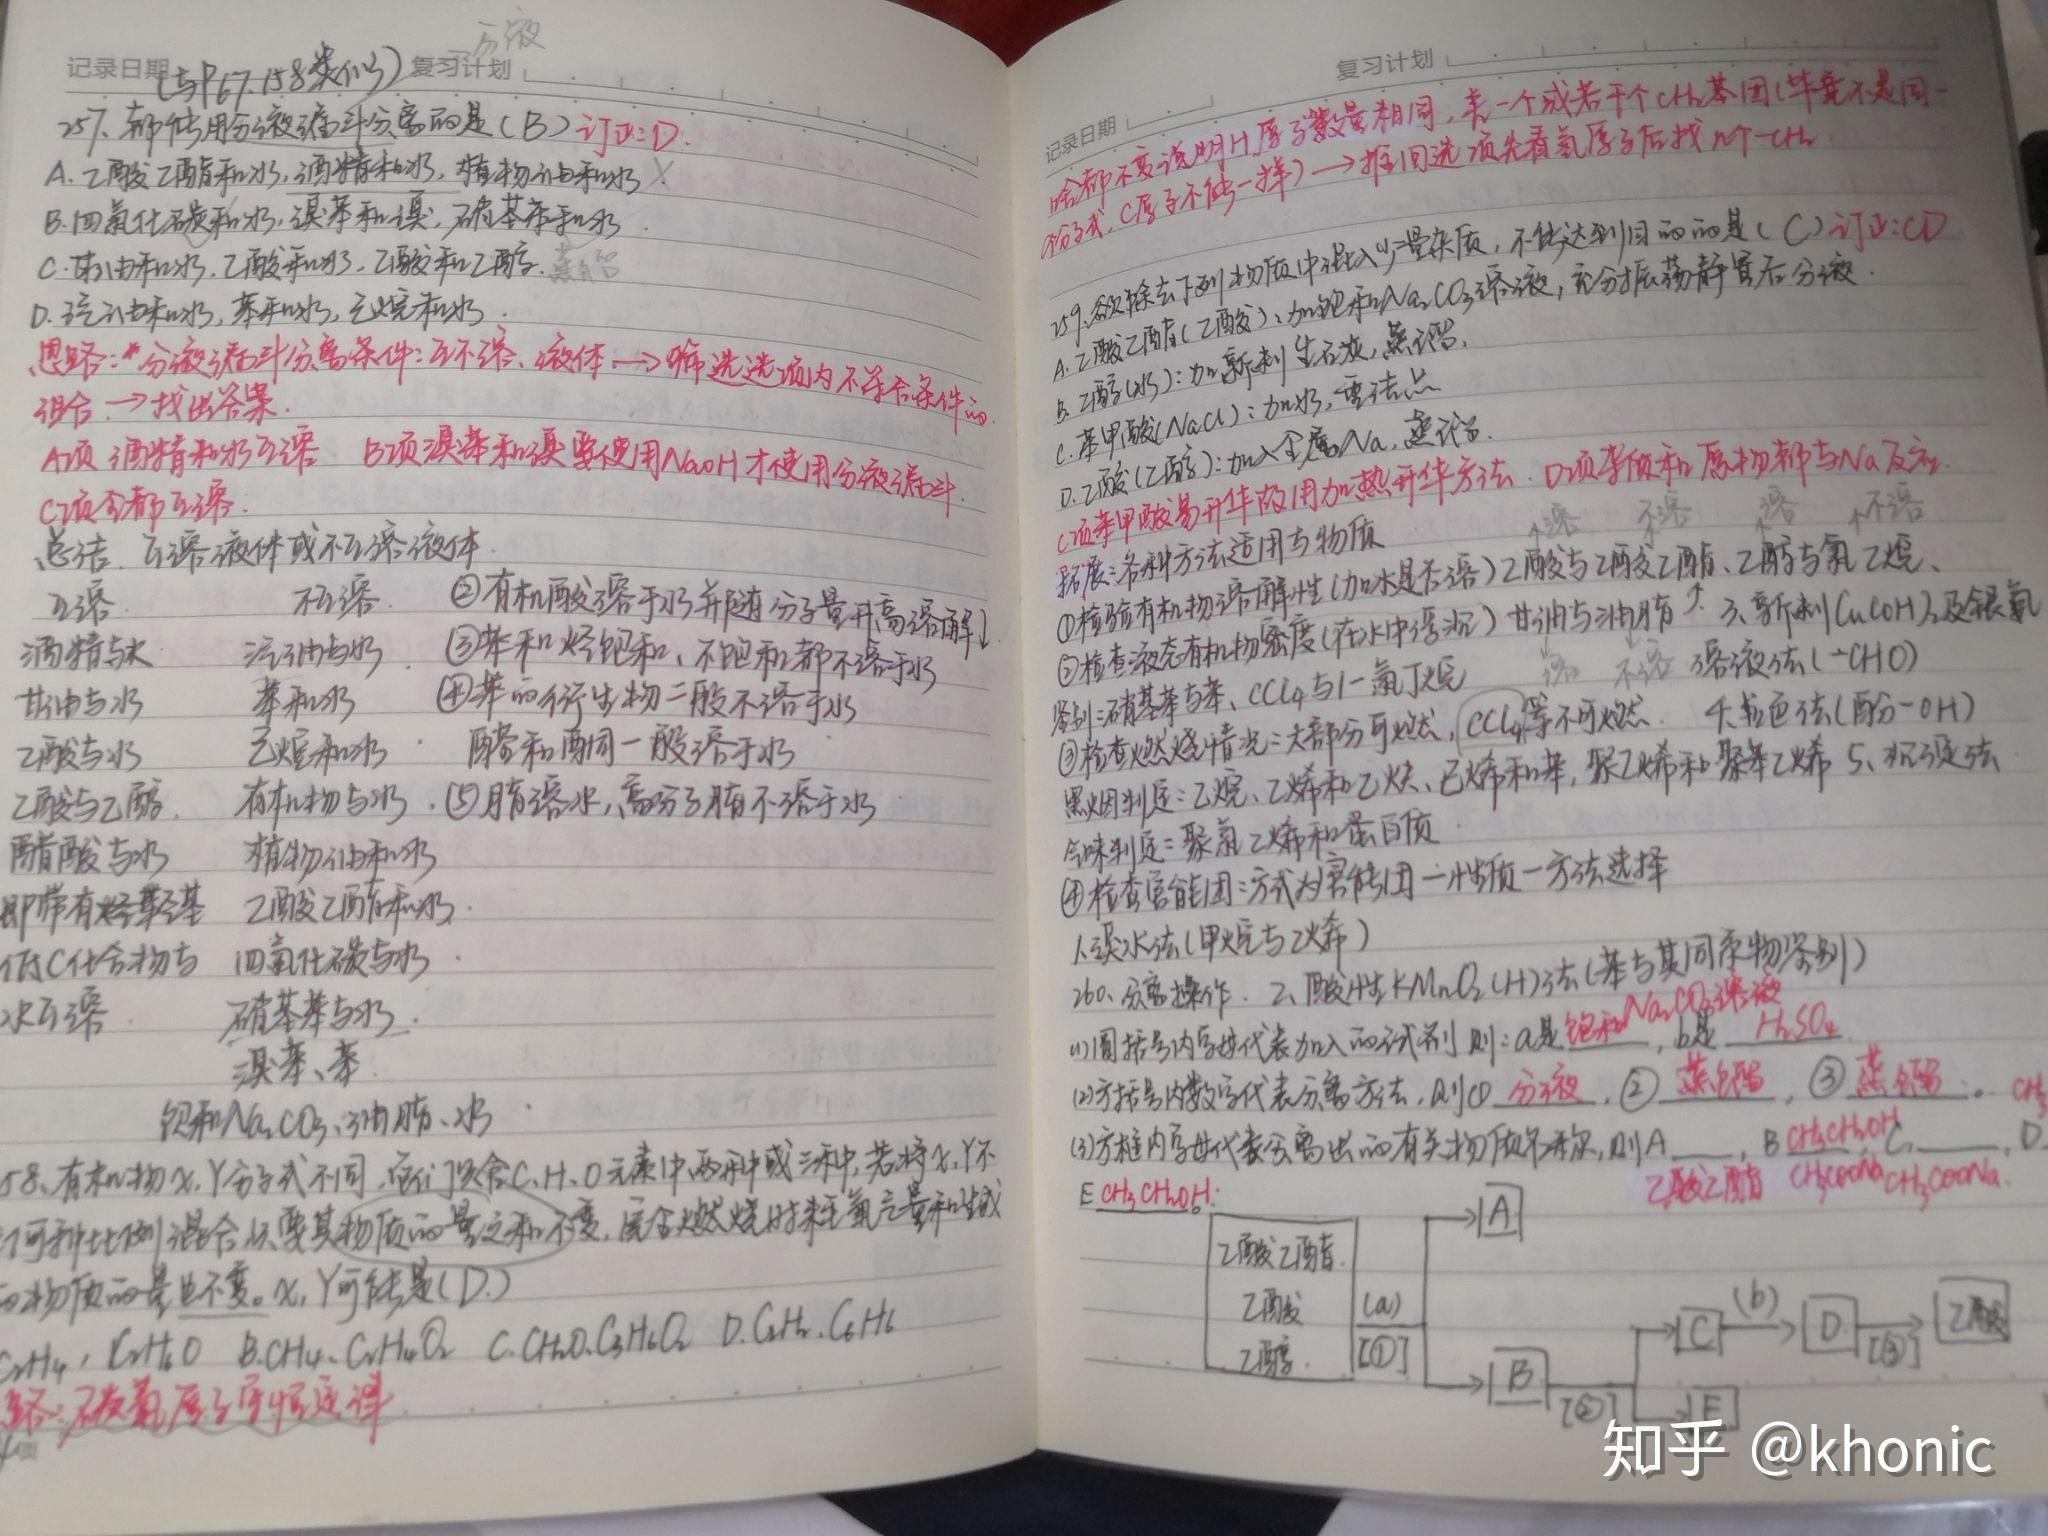 分液
记录日期 (与P67.158类似) 复习计划
257. 都能用分液漏斗分离的是(B) 订正:D.
A.乙酸乙酯和水,酒精和水,植物油和水 X
B.四氯化碳和水,溴苯和溴,硝基苯和水.
C.甘油和水,乙酸和水,乙酸和乙醇. 蒸馏
D.汽油和水,苯和水,己烷和水.
思路:*分液漏斗分离条件:互不溶、液体→筛选选项内不符合条件的
组合.→找出答案.
A项酒精和水互溶 B项溴苯和溴要使用NaOH才使用分液漏斗.
C项全都互溶.
总结.互溶液体或不互溶液体.
互溶. 不互溶. ②有机酸溶于水并随分子量升高溶解↓.
酒精与水 汽油与水. ③苯和烃饱和、不饱和都不溶于水
甘油与水 苯和水 ④苯的衍生物一般不溶于水
乙酸与水 己烷和水. 醛和酮一般溶于水
乙酸与乙醇. 有机物与水. ⑤脂溶水,高分子脂不溶于水
醋酸与水 植物油和水
即带有羟基 乙酸乙酯和水.
低C化合物与 四氯化碳与水.
水互溶. 硝基苯与水.
溴苯、苯.
饱和Na₂CO₃、油脂、水.
58、有机物X,Y分子式不同,它们只含C、H、O元素中两种或三种,若将X,Y不
何种比例混合,只要其物质的量之和不变,完全燃烧时耗氧气量和生成
的物质的量也不变。X,Y可能是(D.)
C₂H₄,C₂H₆O B.CH₄、C₂H₄O₂ C.CH₂O.C₃H₆O₂ D.C₂H₂.C₆H₆
思路:碳氢原子守恒定律
页
复习计划
记录日期
啥都不变说明H原子数量相同,差一个或若干个CH₂基团(毕竟不是同一
分子式,C原子不能一样)→推回选项先看氢原子后找n个-CH₂.
259.欲除去下列物质中混入少量杂质,不能达到目的的是(C)订正:CD
A.乙酸乙酯(乙酸):加饱和Na₂CO₃溶液,充分振荡静置后分液.
B.乙醇(水):加新制生石灰,蒸馏.
C.苯甲酸(NaCl):加水,重结晶
D.乙酸(乙醇):加入金属Na,蒸馏.
C项苯甲酸易升华故用加热升华方法.D项杂质和原物都与Na反应.
↑溶 不溶 ↑溶 ↑不溶
拓展:各种方法适用与物质
①检验有机物溶解性(加水是否溶)乙酸与乙酸乙酯、乙醇与氯乙烷、
②检查液态有机物密度(在水中浮沉) 甘油与油脂↑ 3、新制Cu(OH)₂及银氨
溶 不溶 溶液法(-CHO)
鉴别:硝基苯与苯、CCl₄与1-氯丁烷
③检查燃烧情况:大部分可燃,CCl₄等不可燃. 4.显色法(酚-OH)
黑烟判定:乙烷、乙烯和乙炔、己烯和苯,聚乙烯和聚苯乙烯 5、沉淀法.
气味判定:聚氯乙烯和蛋白质.
④检查官能团:方式为官能团-性质-方法选择
1.溴水法(甲烷与乙烯)
260、分离操作. 2、酸性KMnO₂(H)法(苯与其同系物鉴别)
(1)圆括号内字母代表加入的试剂 则:a是饱和Na₂CO₃溶液,b是 H₂SO₄
(2)方括号内数字代表分离方法,则①分液,②蒸馏,③蒸馏。 CH₃
(3)方框内字母代表分离出的有关物质名称,则A___,B CH₃CH₂OH C.___,D.
乙酸乙酯 CH₃COONa CH₃COONa.
E CH₃CH₂OH:
A
乙酸乙酯.
乙酸 (a)
乙醇. [①]
C (b) D [③] 乙酸
B [②] E
知乎 @khonic